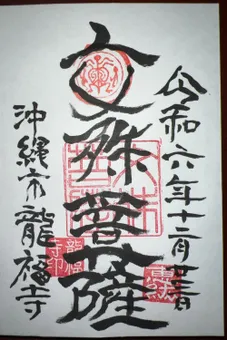 令和六年十二月廿二日
文殊菩薩
沖縄市龍福寺